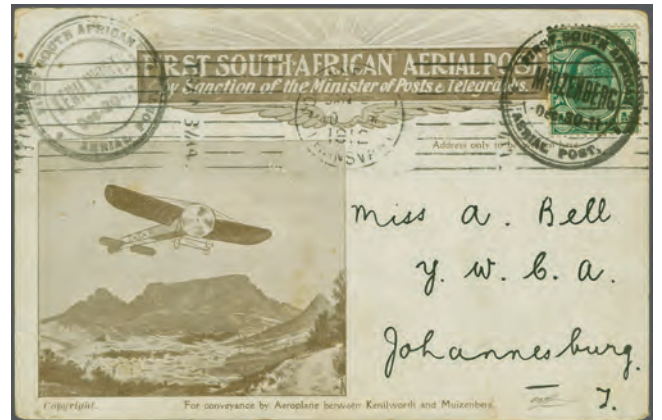 FIRST SOUTH AFRICAN AERIAL POST
By Sanction of the Minister of Posts & Telegraphs.
FIRST SOUTH AFRICAN
KENILWORTH
Dec-30-11
AERIAL POST.
TRANSVAAL
FIRST SOUTH AFRICAN
MUIZENBERG
Dec-30-11
AERIAL POST.
Address only to be
Miss A. Bell
Y. W. C. A.
Johannesburg.
T.
Copyright.
For conveyance by Aeroplane between Kenilworth and Muizenberg.